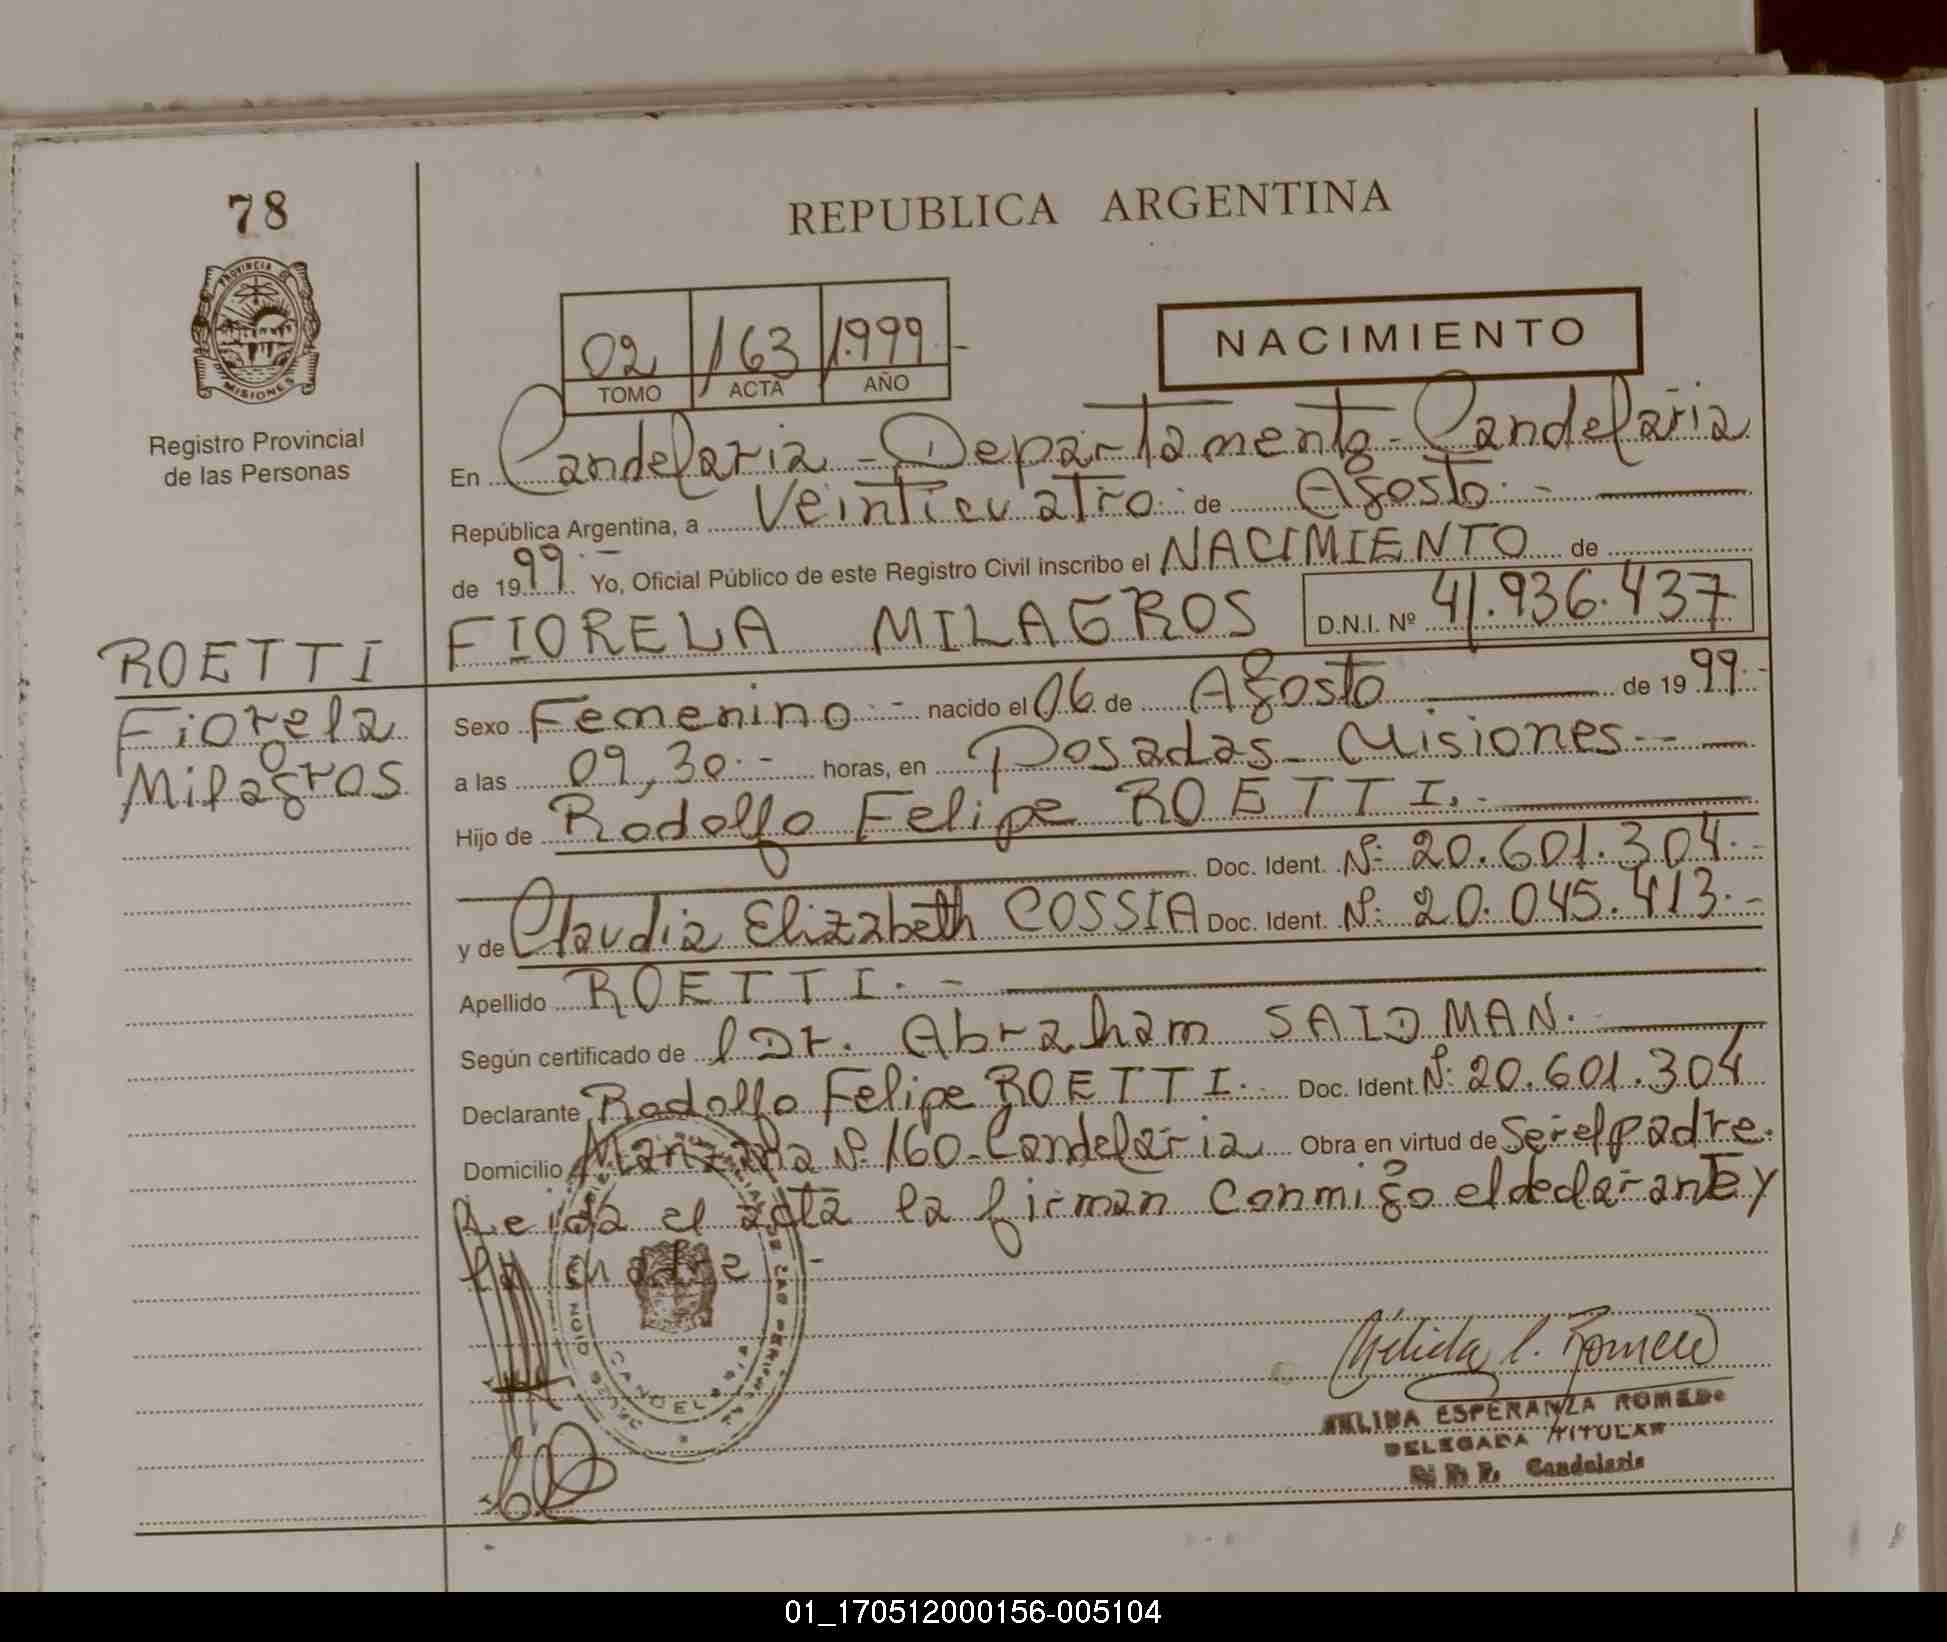 78
REPUBLICA ARGENTINA
PROVINCIA DE
MISIONES
Registro Provincial
de las Personas
02 163 1.999.-
TOMO ACTA AÑO
NACIMIENTO
En Candelaria - Departamento - Candelaria
República Argentina, a Veinticuatro.- de Agosto.-
de 1999.- Yo, Oficial Público de este Registro Civil inscribo el NACIMIENTO de
FIORELA MILAGROS D.N.I. Nº 41.936.437
ROETTI
Fiorela
Milagros
Sexo Femenino.- nacido el 06 de Agosto de 1999.-
a las 09,30.- horas, en Posadas - Misiones --
Hijo de Rodolfo Felipe ROETTI.-
Doc. Ident. Nº: 20.601.304.-
y de Claudia Elizabeth COSSIA Doc. Ident. Nº: 20.045.413.-
Apellido ROETTI.-
Según certificado de l Dr. Abraham SAIDMAN.-
Declarante Rodolfo Felipe ROETTI. Doc. Ident. Nº: 20.601.304
Domicilio Manzana Nº 160 - Candelaria Obra en virtud de ser el padre.
Leida el acta la firman conmigo el declarante y
la madre.-
ESPERANZA ROMERO
DELEGADA TITULAR
Candelaria
01_170512000156-005104